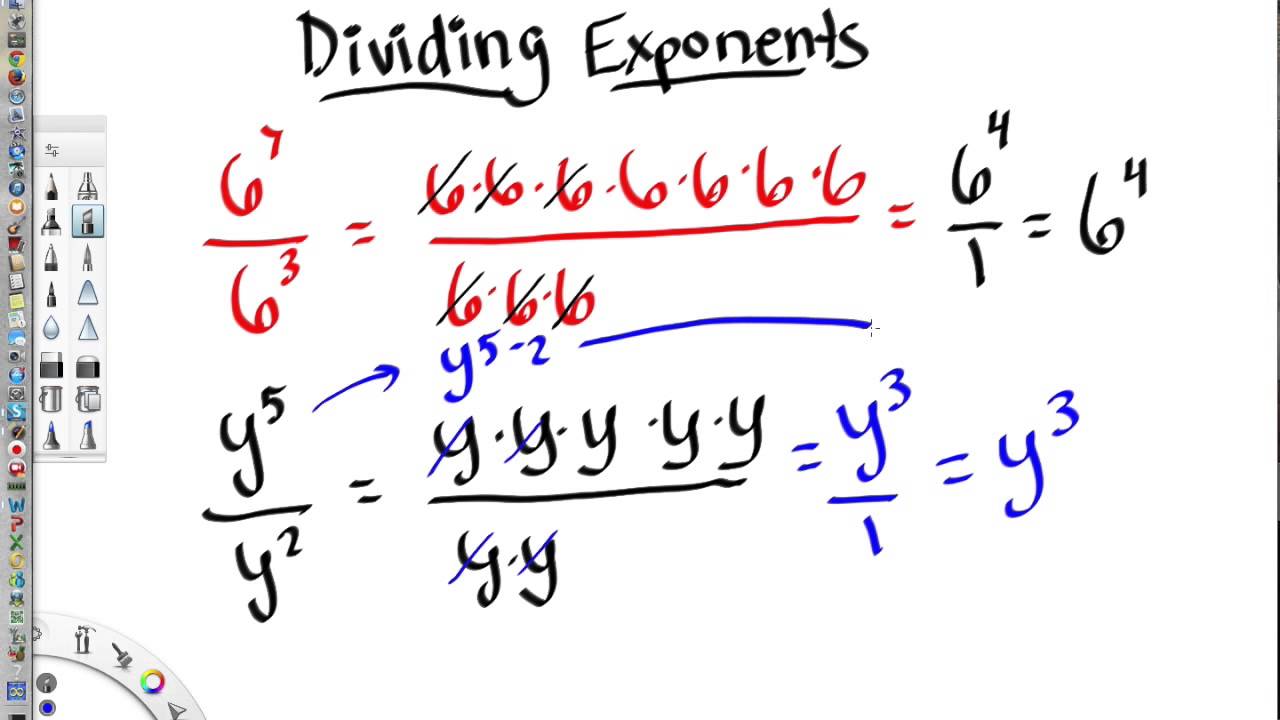 Dividing Exponents
6^7 / 6^3 = 6·6·6·6·6·6·6 / 6·6·6 = 6^4 / 1 = 6^4
y^5-2
y^5 / y^2 = y·y·y·y·y / y·y = y^3 / 1 = y^3